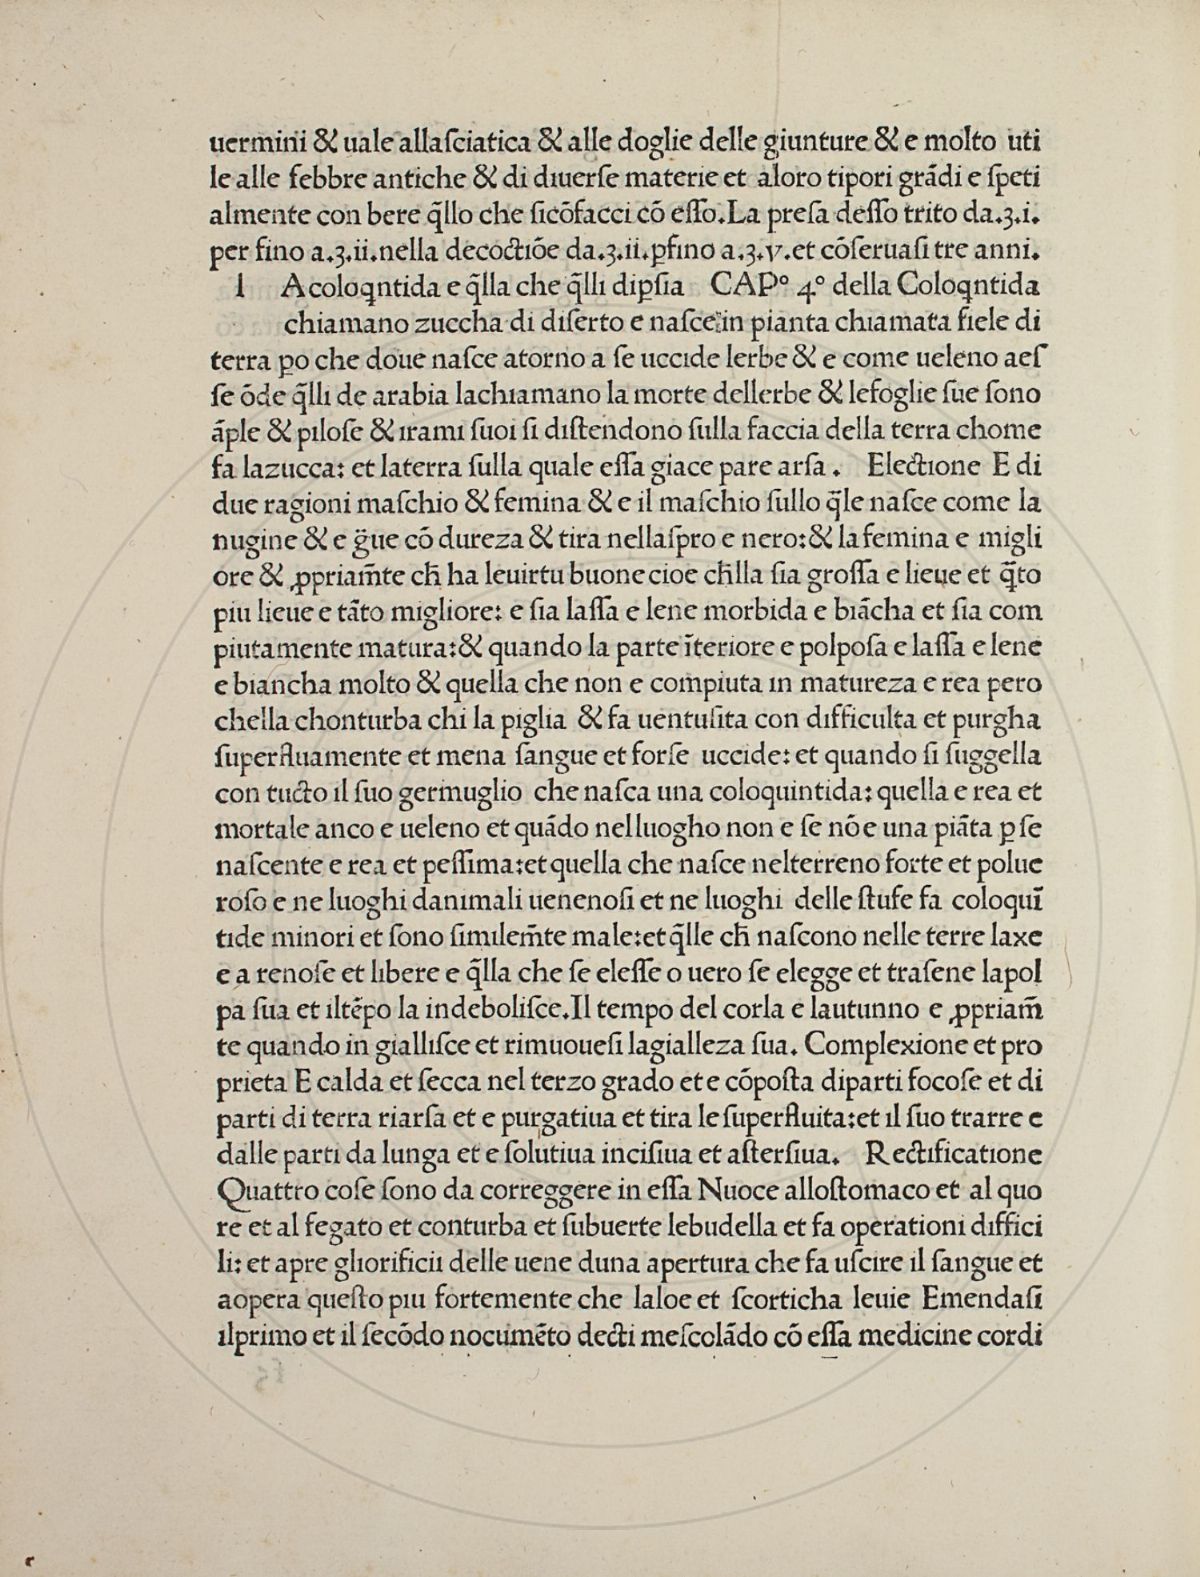 uermini & uale allaſciatica & alle doglie delle giunture & e molto uti
le alle febbre antiche & di diuerſe materie et aloro tipori grādi e ſpeti
almente con bere q̄llo che ſicōfacci cō eſſo.La preſa deſſo trito da.ʒ.i.
per fino a.ʒ.ii.nella decoctiōe da.ʒ.ii.ꝑfino a.ʒ.v.et cōſeruaſi tre anni.
l Acoloqntida e q̄lla che q̄lli dipſia CAPº 4º della Coloqntida
chiamano zuccha di diſerto e naſce in pianta chiamata fiele di
terra ꝑo che doue naſce atorno a ſe uccide lerbe & e come ueleno aeſ
ſe ōde q̄lli de arabia lachiamano la morte dellerbe & lefoglie ſue ſono
āple & piloſe & irami ſuoi ſi diſtendono ſulla faccia della terra chome
fa lazucca: et laterra ſulla quale eſſa giace pare arſa . Electione E di
due ragioni maſchio & femina & e il maſchio ſullo q̄le naſce come la
nugine & e g̈ue cō dureza & tira nellaſpro e nero:& la femina e migli
ore & ꝓpriam̄te ch̄ ha leuirtu buone cioe ch̄lla ſia groſſa e lieue et q̄to
piu lieue e tāto migliore: e ſia laſſa e lene morbida e biācha et ſia com
piutamente matura:& quando la parte īteriore e polpoſa e laſſa e lene
e biancha molto & quella che non e compiuta in matureza e rea pero
chella chonturba chi la piglia & fa uentuſita con difficulta et purgha
ſuperfluamente et mena ſangue et forſe uccide: et quando ſi ſuggella
con tucto il ſuo germuglio che naſca una coloquintida: quella e rea et
mortale anco e ueleno et quādo nel luogho non e ſe nōe una piāta ꝑ ſe
naſcente e rea et peſſima:et quella che naſce nelterreno forte et polue
roſo e ne luoghi danimali uenenoſi et ne luoghi delle ſtufe fa coloquī
tide minori et ſono ſimilem̄te male:et q̄lle ch̄ naſcono nelle terre laxe
e a renoſe et libere e q̄lla che ſe eleſſe o uero ſe elegge et traſene lapol
pa ſua et iltēpo la indeboliſce.Il tempo del corla e lautunno e ꝓpriam̄
te quando in gialliſce et rimuoueſi lagialleza ſua. Complexione et pro
prieta E calda et ſecca nel terzo grado et e cōpoſta diparti focoſe et di
parti di terra riarſa et e purgatiua et tira le ſuperfluita:et il ſuo trarre e
dalle parti da lunga et e ſolutiua inciſiua et aſterſiua. Rectificatione
Quattro coſe ſono da correggere in eſſa Nuoce alloſtomaco et al quo
re et al fegato et conturba et ſubuerte lebudella et fa operationi diffici
li: et apre gliorificii delle uene duna apertura che fa uſcire il ſangue et
aopera queſto piu fortemente che laloe et ſcorticha leuie Emendaſi
ilprimo et il ſecōdo nocumēto decti meſcolādo cō eſſa medicine cordi